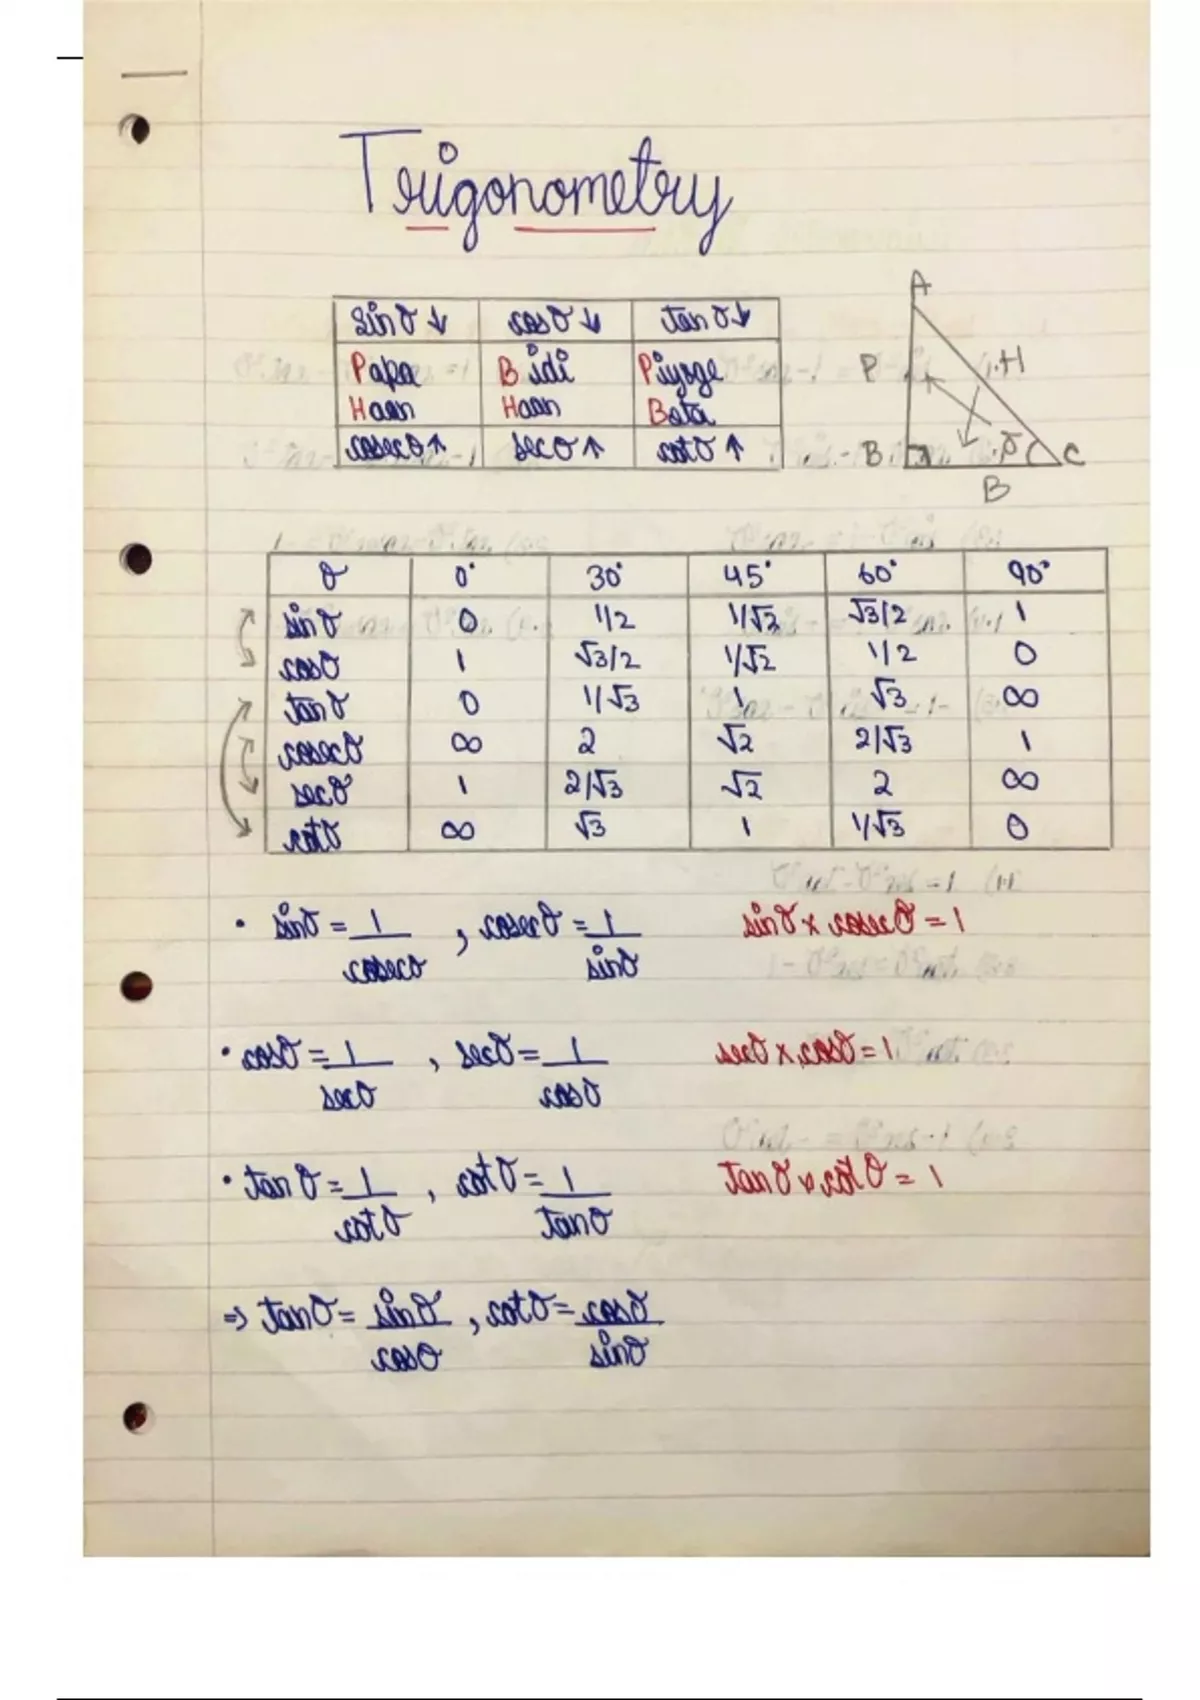 Trigonometry
sinθ↓ cosθ↓ tanθ↓
Papa Bidi Piyoge
Haan Haan Beta
cosecθ↑ secθ↑ cotθ↑
A
P H
B θ C
B
θ 0° 30° 45° 60° 90°
sinθ 0 1/2 1/√2 √3/2 1
cosθ 1 √3/2 1/√2 1/2 0
tanθ 0 1/√3 1 √3 ∞
cosecθ ∞ 2 √2 2/√3 1
secθ 1 2/√3 √2 2 ∞
cotθ ∞ √3 1 1/√3 0
• sinθ = 1/cosecθ , cosecθ = 1/sinθ sinθ × cosecθ = 1
• cosθ = 1/secθ , secθ = 1/cosθ secθ × cosθ = 1
• tanθ = 1/cotθ , cotθ = 1/tanθ tanθ × cotθ = 1
⇒ tanθ = sinθ/cosθ , cotθ = cosθ/sinθ